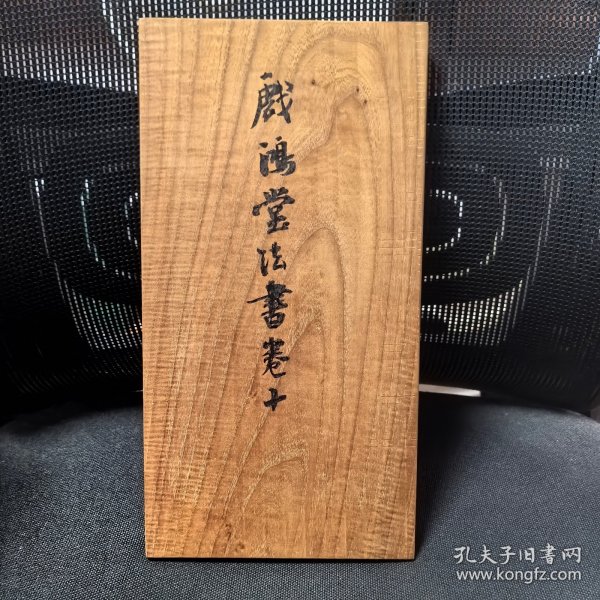 戲鴻堂法書卷十
孔夫子旧書网
www.kongfz.com